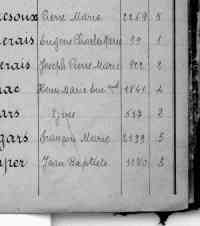 esoux Pierre Marie 2259 5
erais Eugène Charles Marie 99 1
erais Joseph Pierre Marie 902 2
ac Henri Marie 1841 4
ars Yves 517 2
gars François Marie 2199 5
per Jean Baptiste 1180 3